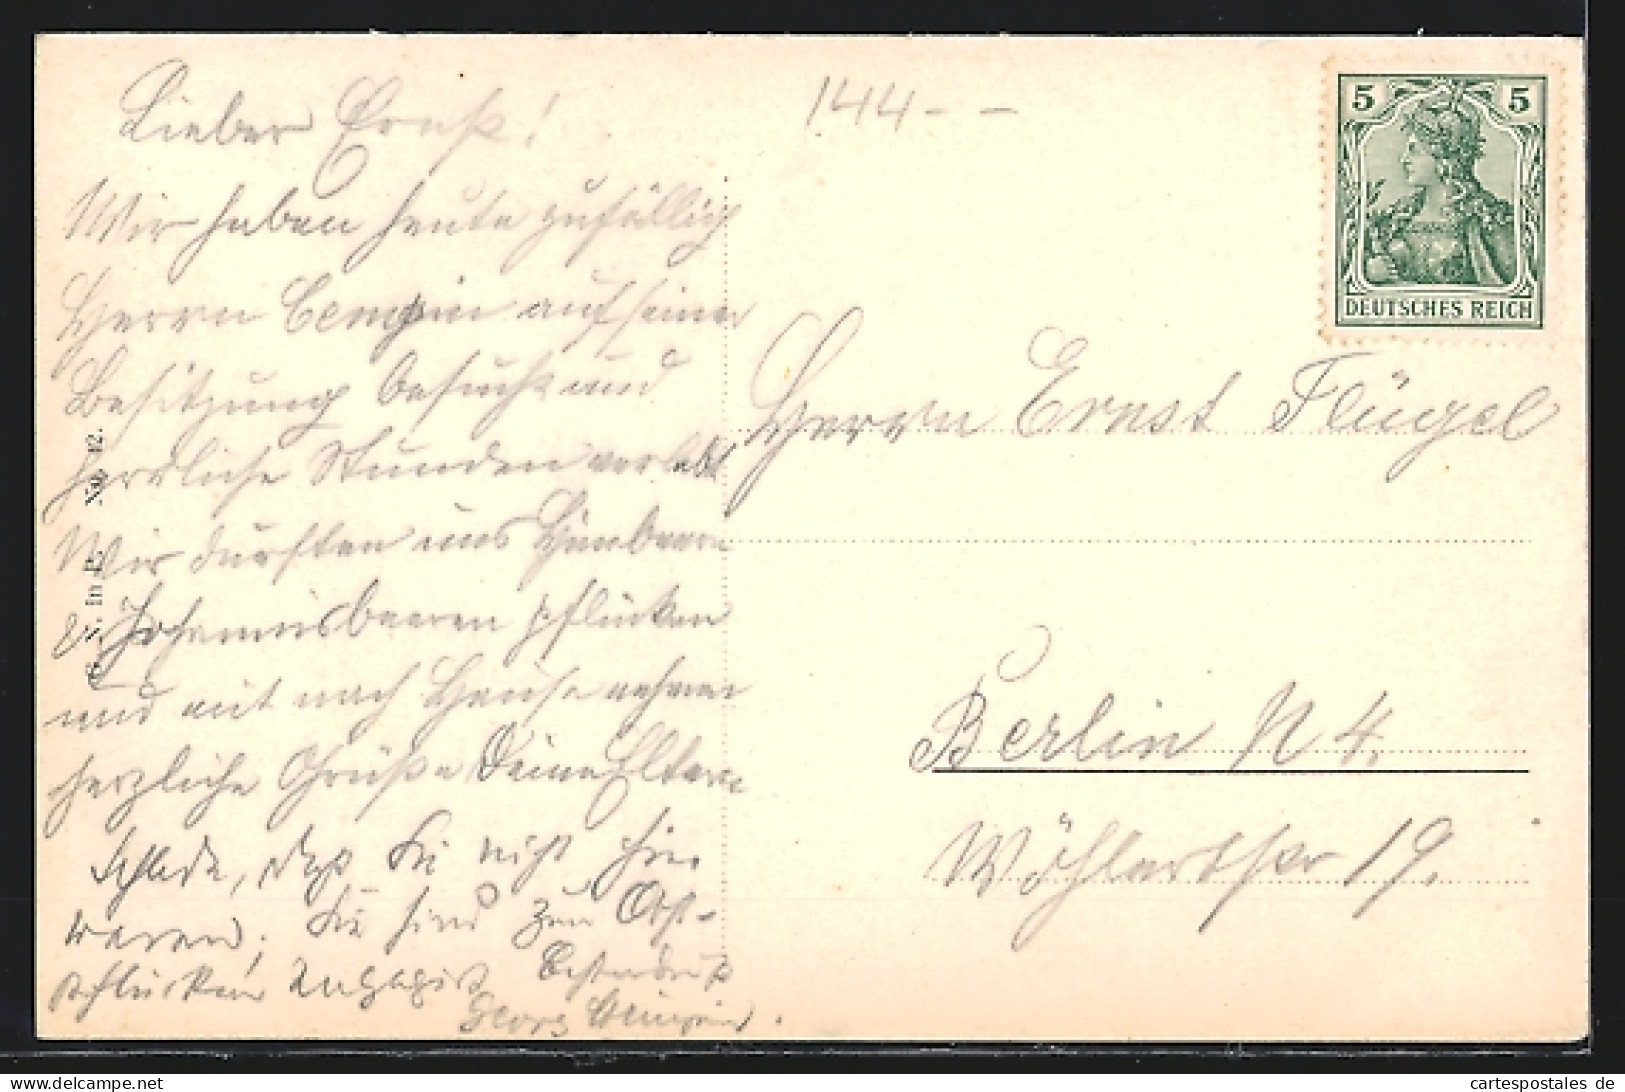 Lieber Ernst!
Wir haben heute zufällig
Herrn auf seiner
Besitzung besucht und
herrliche Stunden verlebt
Wir durften uns Himbeeren
u. Johannisbeeren pflücken
und mit nach Hause nehmen
herzliche Grüße Deine Eltern
Schade, daß Sie nicht hier
waren; Sie sind zum Obst-
pflücken engagirt.
Georg
144 - -
5 5
DEUTSCHES REICH
Herrn Ernst Flügel
Berlin N 4.
Wöhlertstr 19.
in B. No. 12.
cartespostales de
delcampe.net